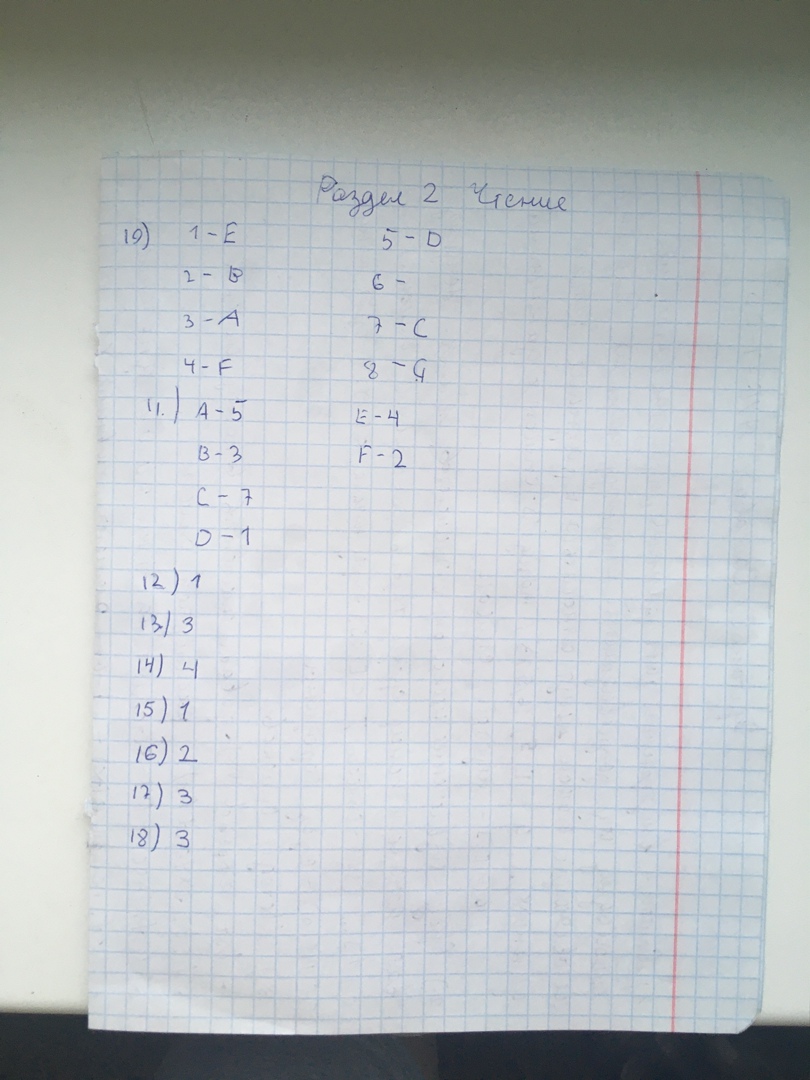 Раздел 2 Чтение
10) 1 - E 5 - D
2 - B 6 -
3 - A 7 - C
4 - F 8 - G
11.) A - 5 E - 4
B - 3 F - 2
C - 7
D - 1
12) 1
13) 3
14) 4
15) 1
16) 2
17) 3
18) 3